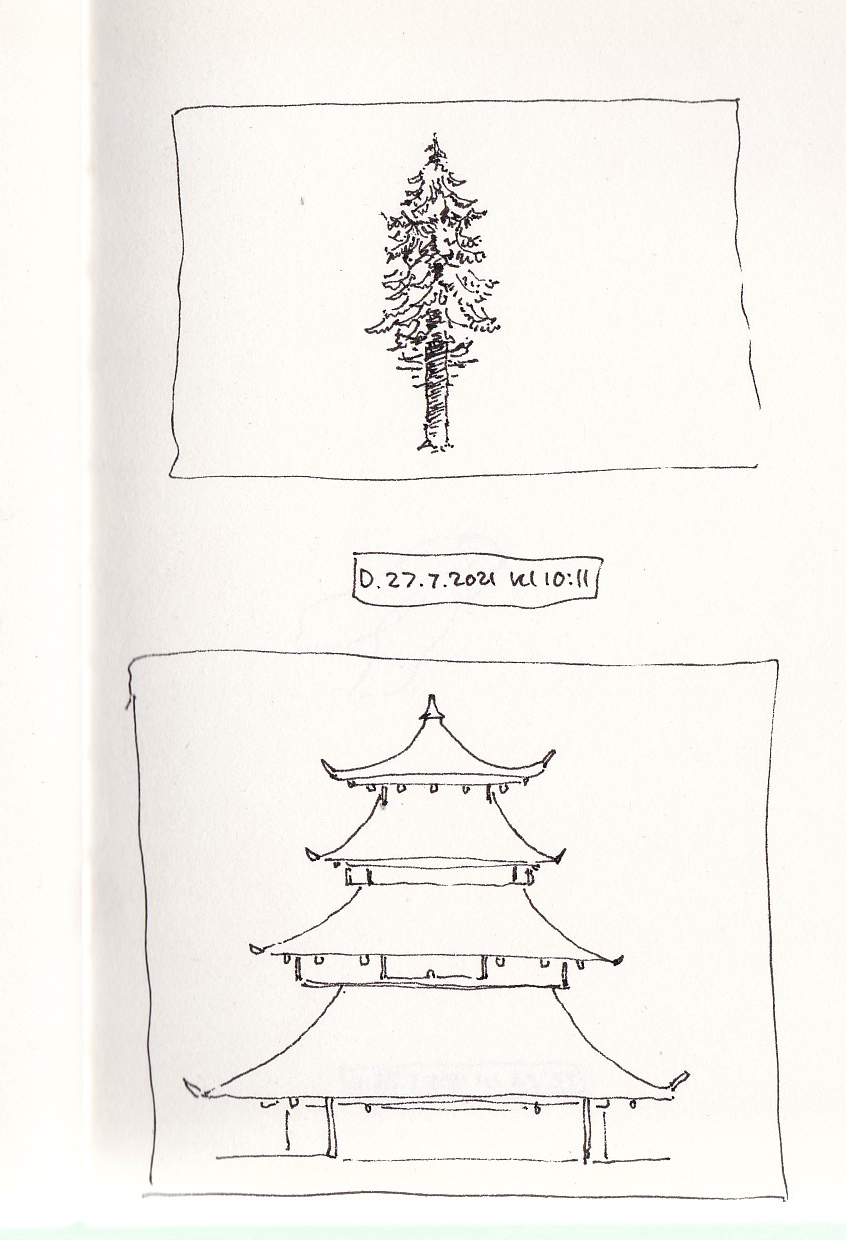 D. 27.7.2021 kl 10:11